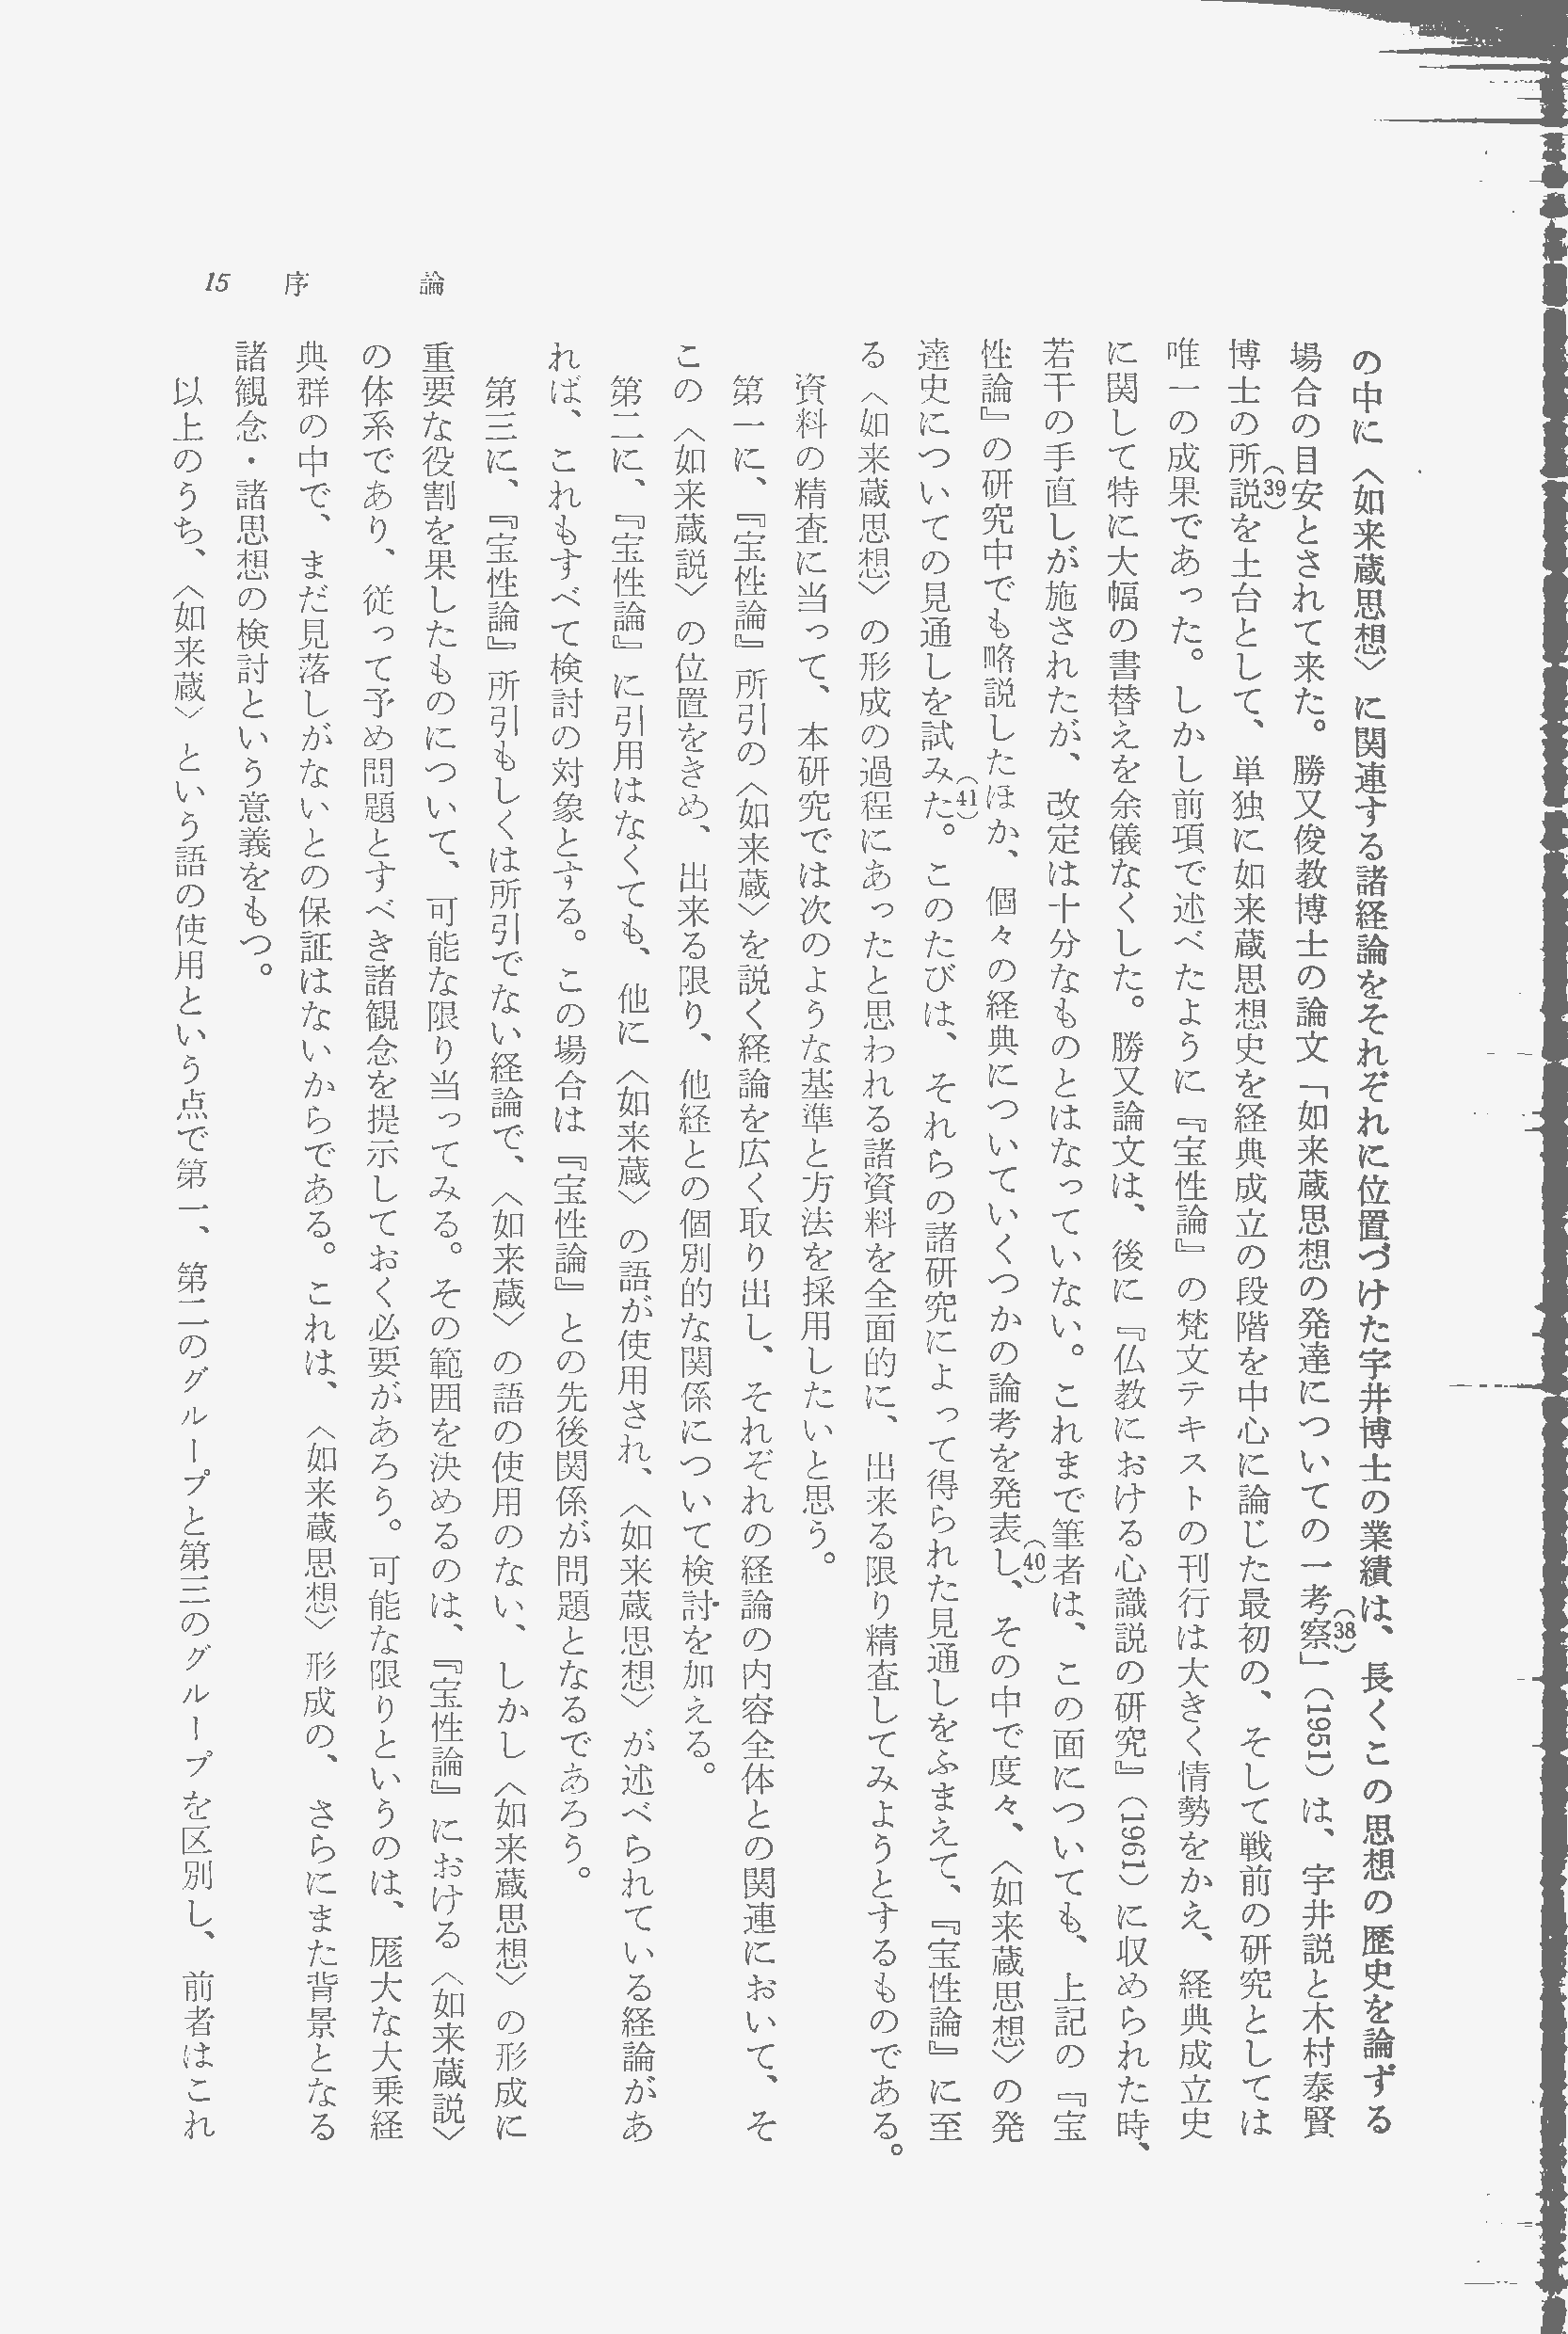 15 序 論
の中に〈如来蔵思想〉に関連する諸経論をそれぞれに位置づけた宇井博士の業績は、長くこの思想の歴史を論ずる
場合の目安とされて来た。勝又俊教博士の論文「如来蔵思想の発達についての一考察」(38)(1951)は、宇井説と木村泰賢
博士の所説(39)を土台として、単独に如来蔵思想史を経典成立の段階を中心に論じた最初の、そして戦前の研究としては
唯一の成果であった。しかし前項で述べたように『宝性論』の梵文テキストの刊行は大きく情勢をかえ、経典成立史
に関して特に大幅の書替えを余儀なくした。勝又論文は、後に『仏教における心識説の研究』(1961)に収められた時、
若干の手直しが施されたが、改定は十分なものとはなっていない。これまで筆者は、この面についても、上記の『宝
性論』の研究中でも略説したほか、個々の経典についていくつかの論考を発表し(40)、その中で度々、〈如来蔵思想〉の発
達史についての見通しを試みた(41)。このたびは、それらの諸研究によって得られた見通しをふまえて、『宝性論』に至
る〈如来蔵思想〉の形成の過程にあったと思われる諸資料を全面的に、出来る限り精査してみようとするものである。
資料の精査に当って、本研究では次のような基準と方法を採用したいと思う。
第一に、『宝性論』所引の〈如来蔵〉を説く経論を広く取り出し、それぞれの経論の内容全体との関連において、そ
この〈如来蔵説〉の位置をきめ、出来る限り、他経との個別的な関係について検討を加える。
第二に、『宝性論』に引用はなくても、他に〈如来蔵〉の語が使用され、〈如来蔵思想〉が述べられている経論があ
れば、これもすべて検討の対象とする。この場合は『宝性論』との先後関係が問題となるであろう。
第三に、『宝性論』所引もしくは所引でない経論で、〈如来蔵〉の語の使用のない、しかし〈如来蔵思想〉の形成に
重要な役割を果したものについて、可能な限り当ってみる。その範囲を決めるのは、『宝性論』における〈如来蔵説〉
の体系であり、従って予め問題とすべき諸観念を提示しておく必要があろう。可能な限りというのは、厖大な大乗経
典群の中で、まだ見落しがないとの保証はないからである。これは、〈如来蔵思想〉形成の、さらにまた背景となる
諸観念・諸思想の検討という意義をもつ。
以上のうち、〈如来蔵〉という語の使用という点で第一、第二のグループと第三のグループを区別し、前者はこれ